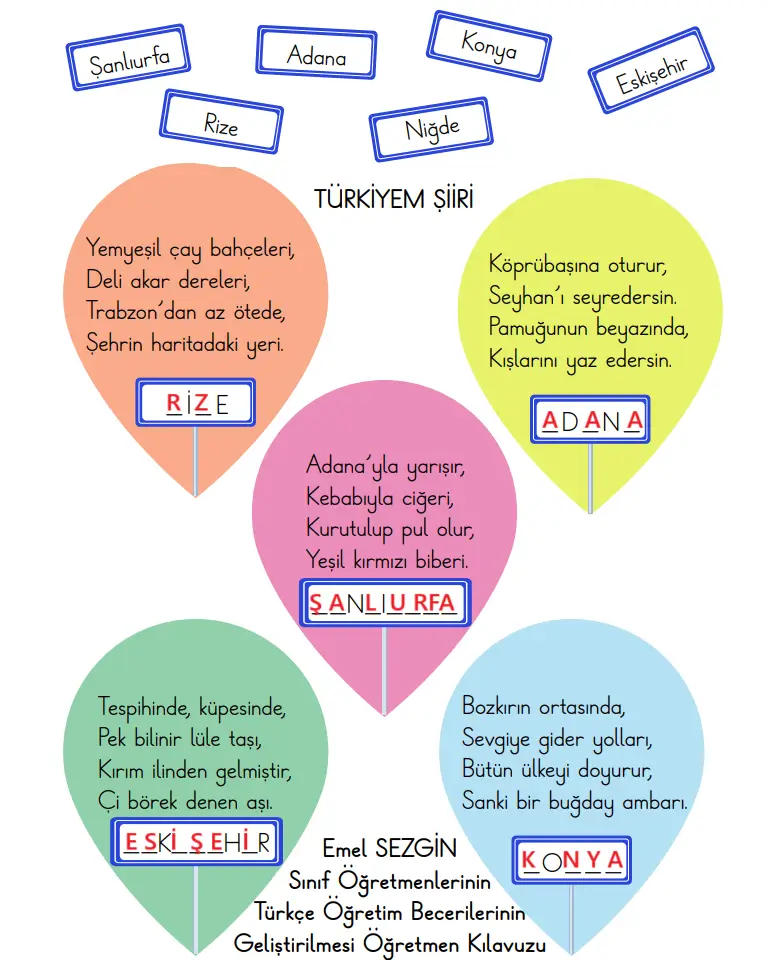 Şanlıurfa
Adana
Konya
Eskişehir
Rize
Niğde
TÜRKİYEM ŞİİRİ
Yemyeşil çay bahçeleri,
Deli akar dereleri,
Trabzon'dan az ötede,
Şehrin haritadaki yeri.
RİZE
Köprübaşına oturur,
Seyhan'ı seyredersin.
Pamuğunun beyazında,
Kışlarını yaz edersin.
ADANA
Adana'yla yarışır,
Kebabıyla ciğeri,
Kurutulup pul olur,
Yeşil kırmızı biberi.
ŞANLIURFA
Tespihinde, küpesinde,
Pek bilinir lüle taşı,
Kırım ilinden gelmiştir,
Çi börek denen aşı.
ESKİŞEHİR
Bozkırın ortasında,
Sevgiye gider yolları,
Bütün ülkeyi doyurur,
Sanki bir buğday ambarı.
KONYA
Emel SEZGİN
Sınıf Öğretmenlerinin
Türkçe Öğretim Becerilerinin
Geliştirilmesi Öğretmen Kılavuzu